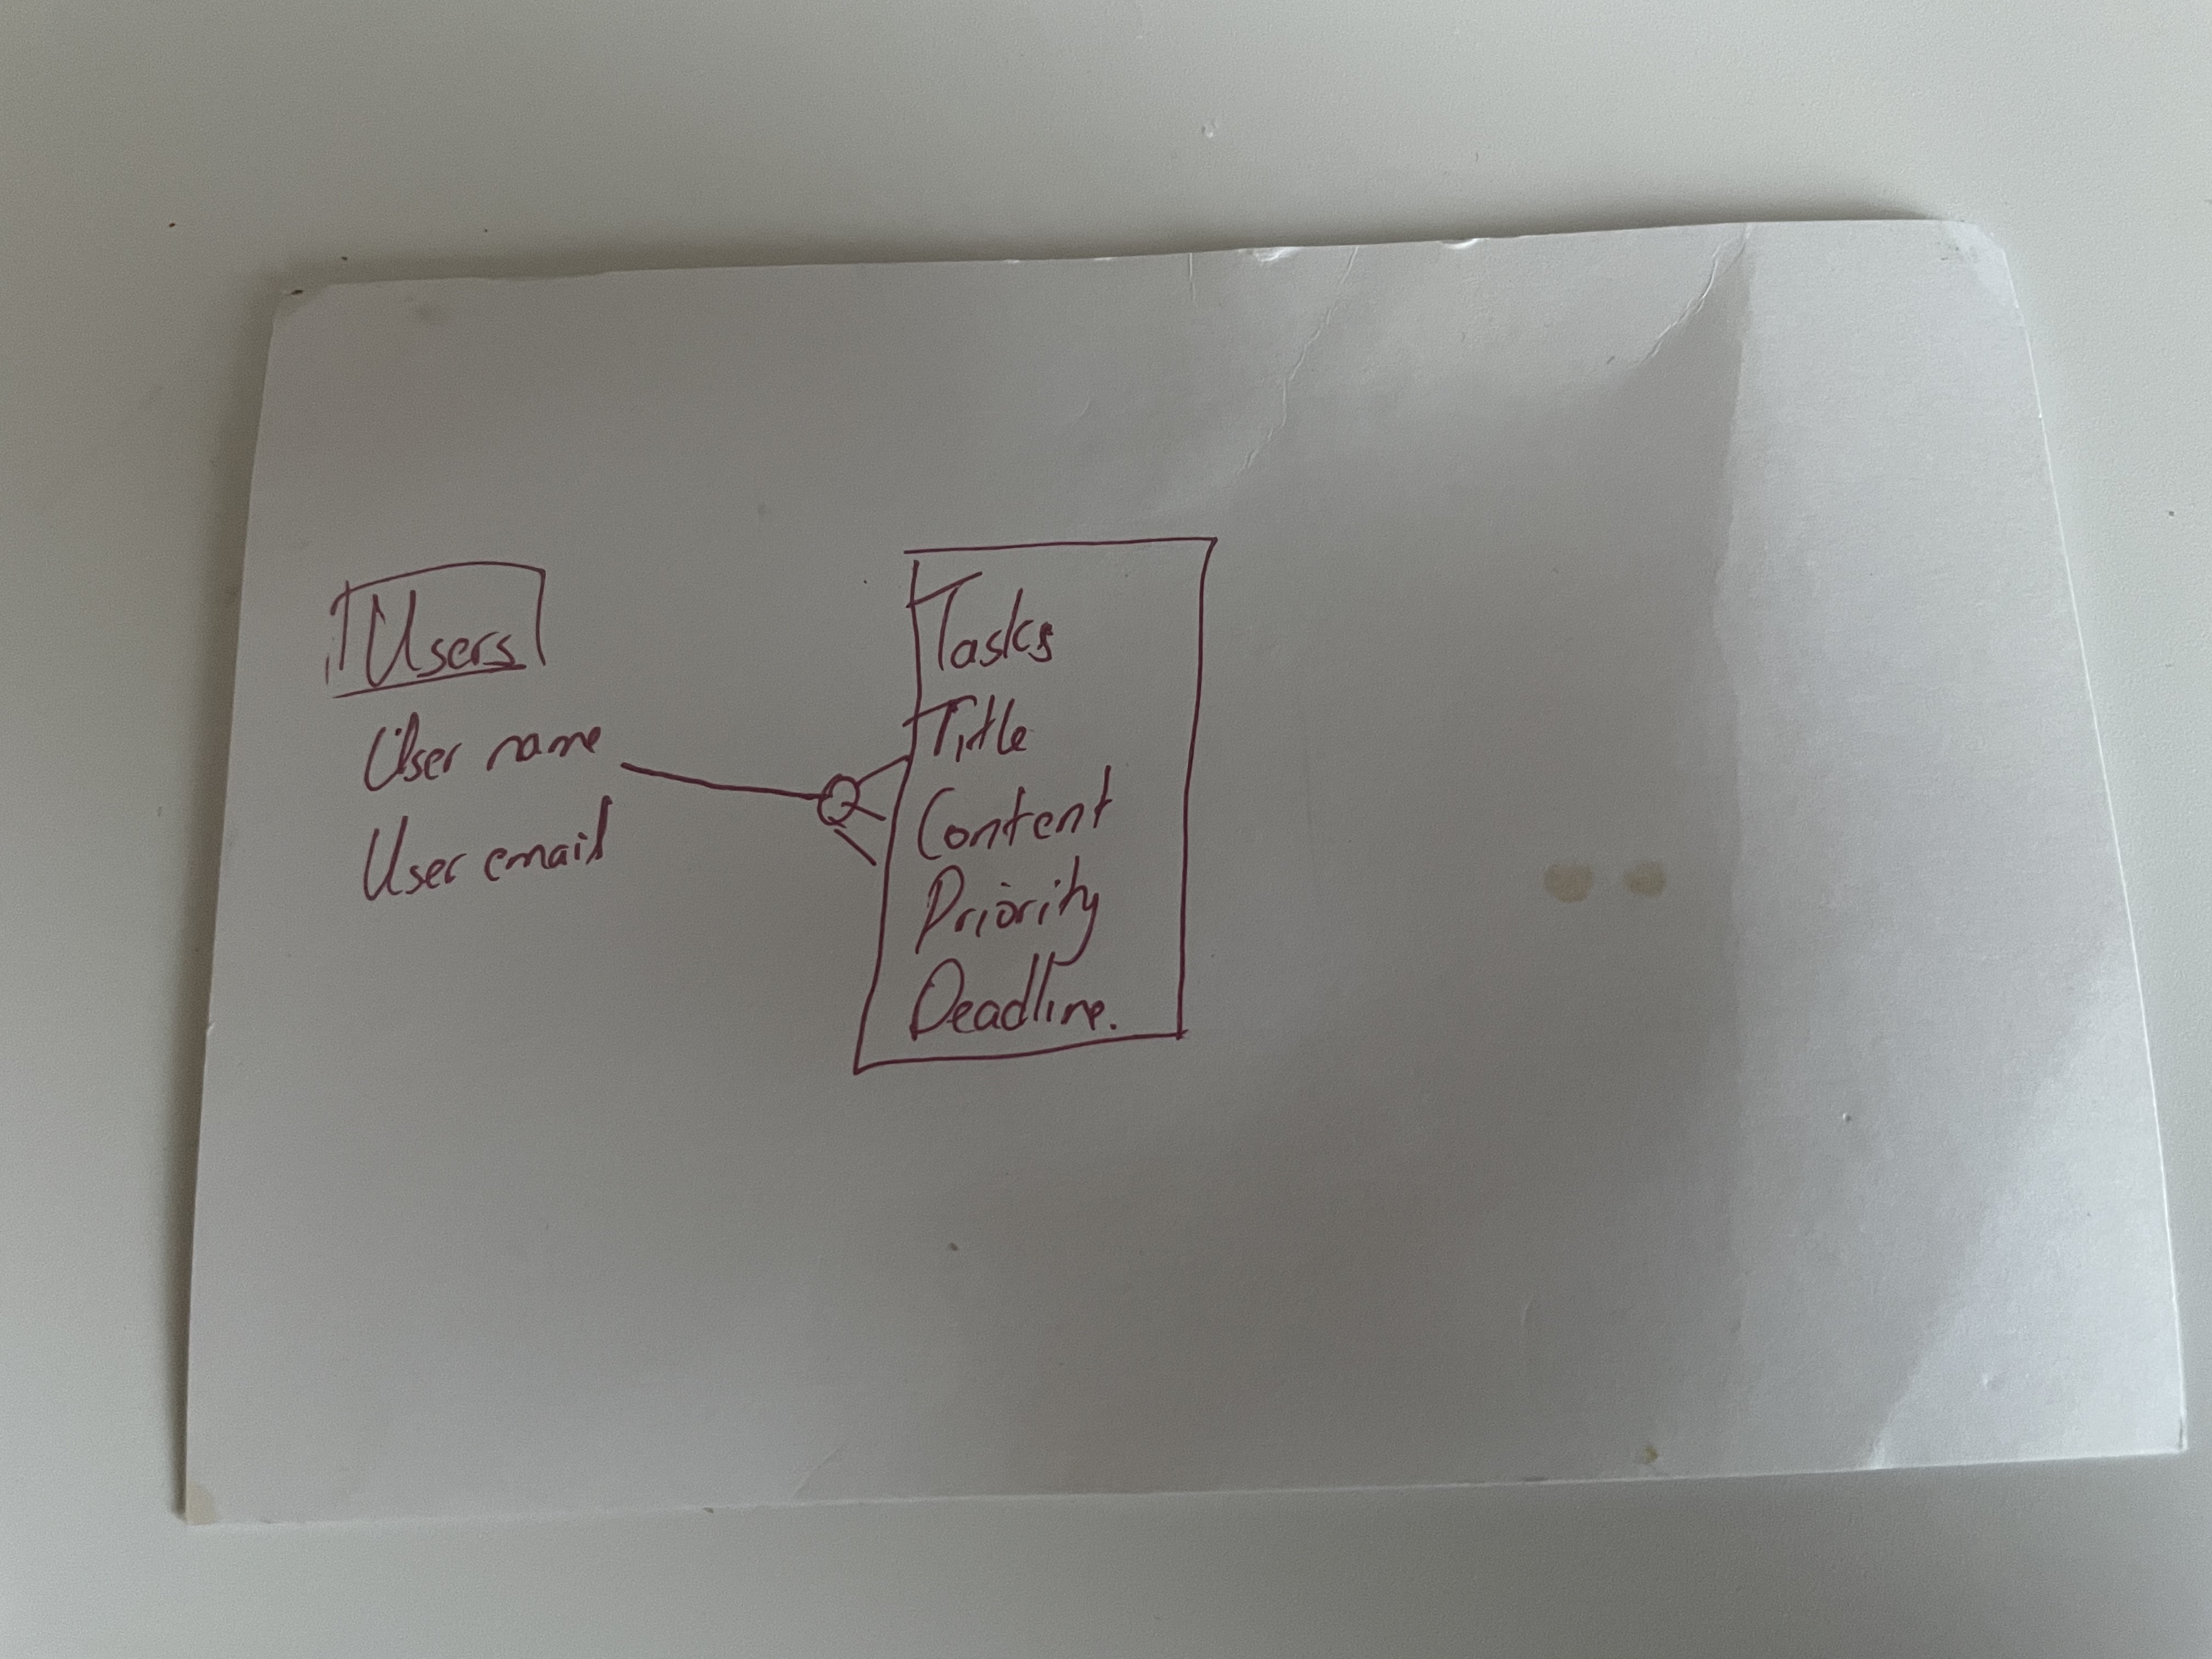 Users
User name
User email
Tasks
Title
Content
Priority
Deadline.